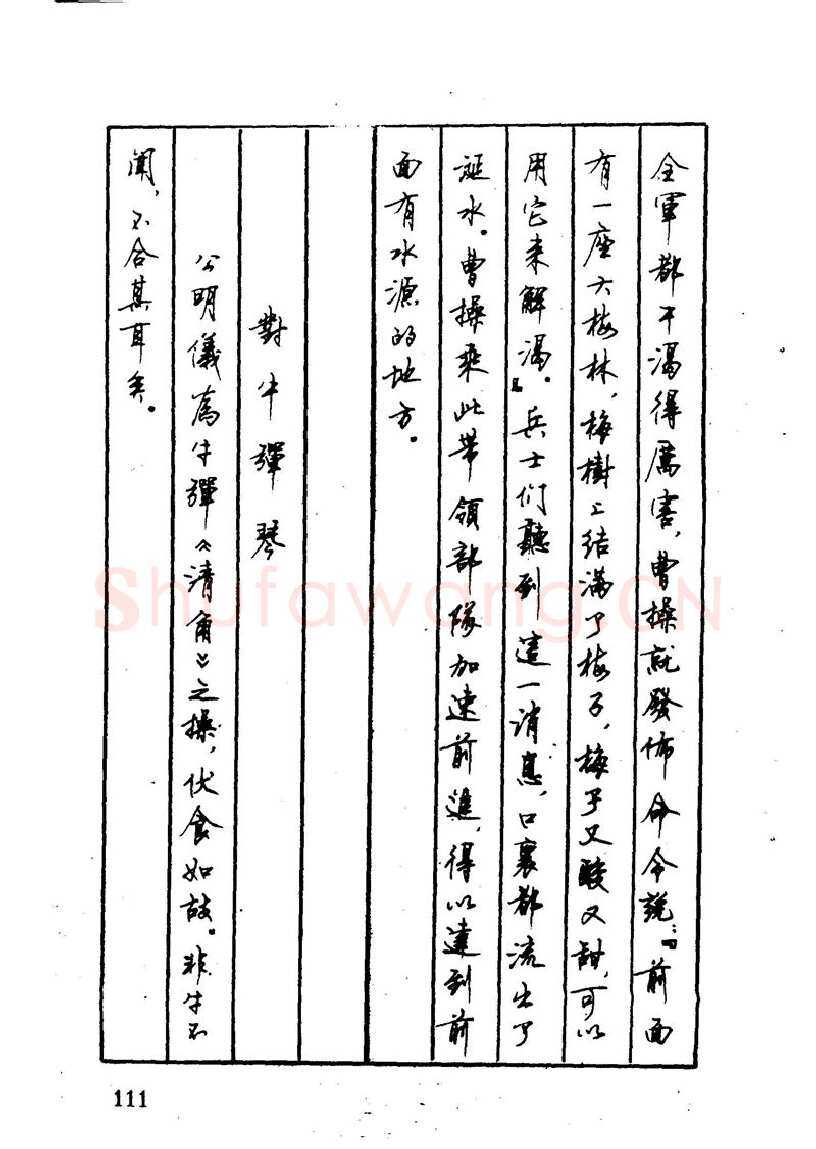 全軍都干渴得厲害，曹操就發佈命令説：『前面
有一座大梅林，梅樹上结满了梅子，梅子又酸又甜，可以
用它来解渴。』兵士们聽到這一消息，口裏都流出了
涎水。曹操乘此带領部隊加速前進，得以達到前
面有水源的地方。
對牛彈琴
公明儀爲牛彈《清角》之操，伏食如故。非牛不
聞，不合其耳矣。
111
Shufawang.CN